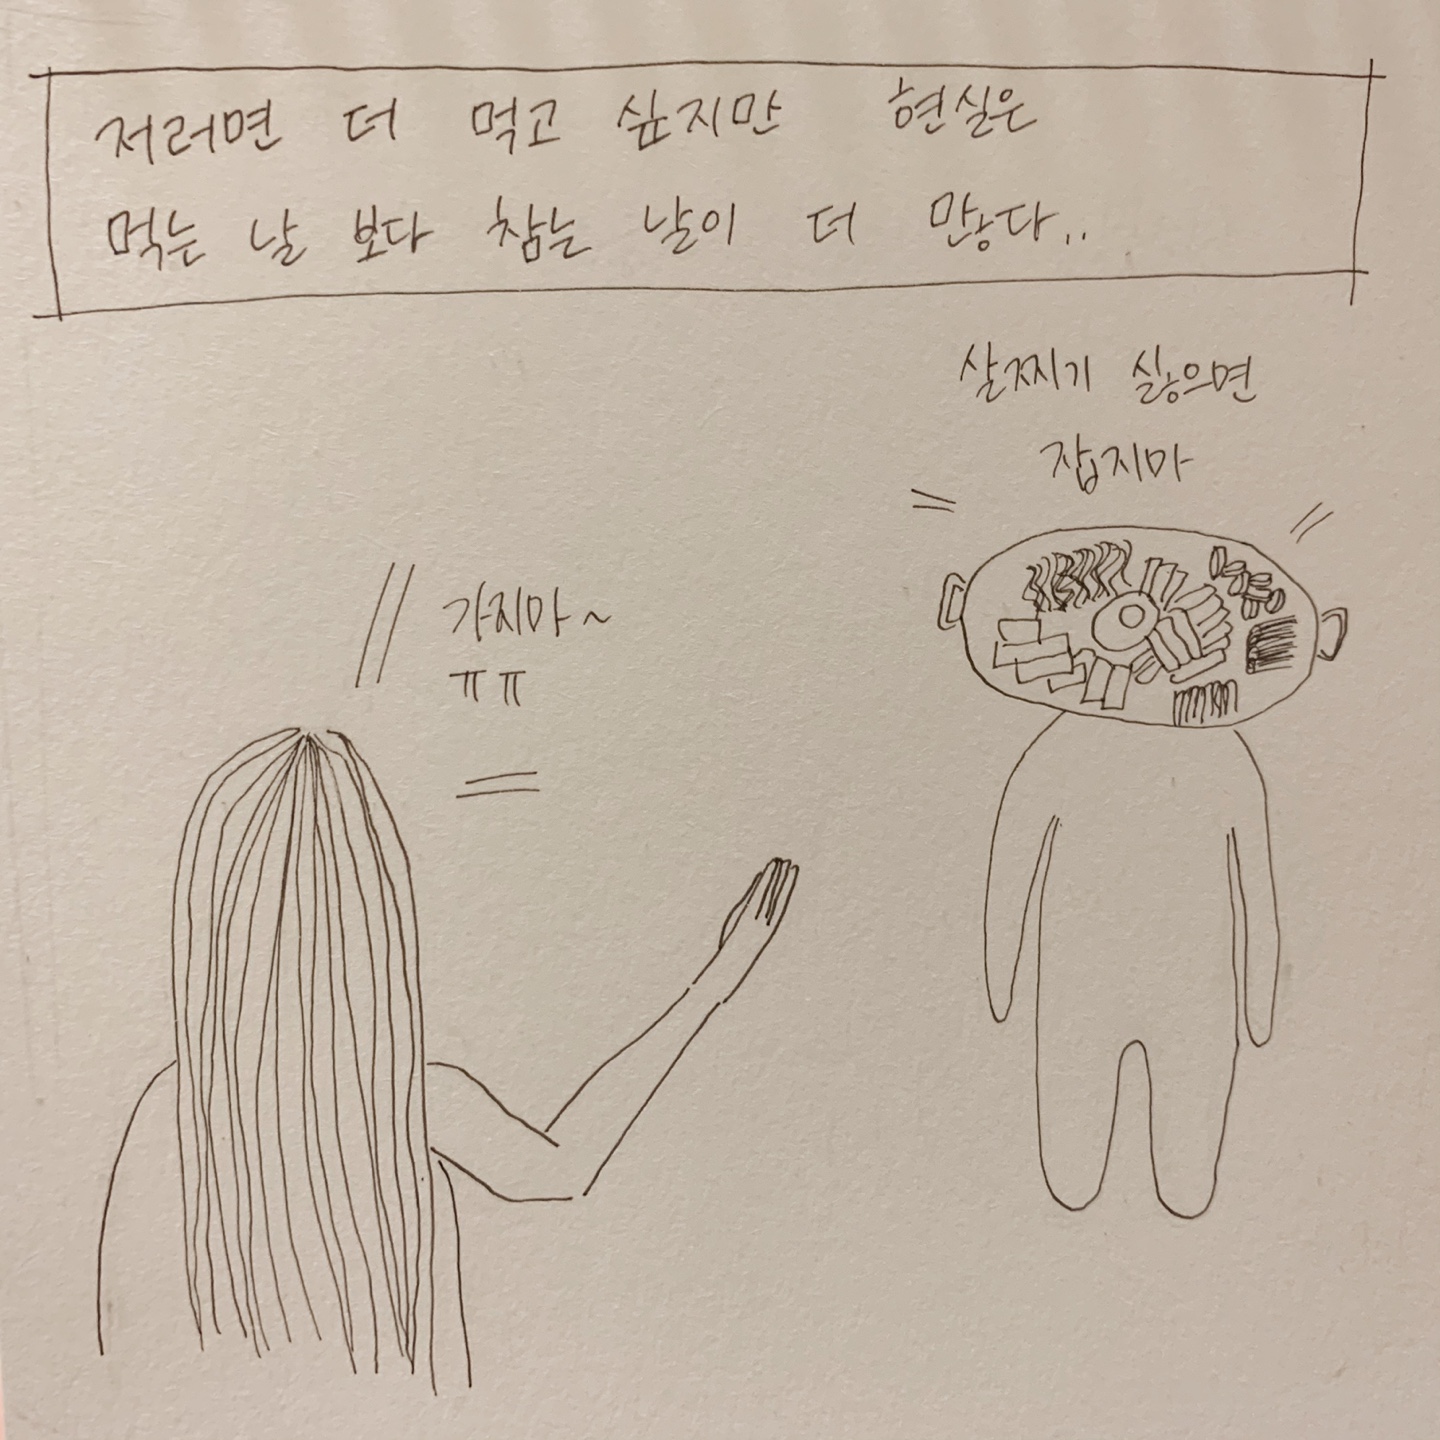 저러면 더 먹고 싶지만 현실은
먹는 날 보다 참는 날이 더 많다..
살찌기 싫으면
잡지마
가지마~
ㅠㅠ